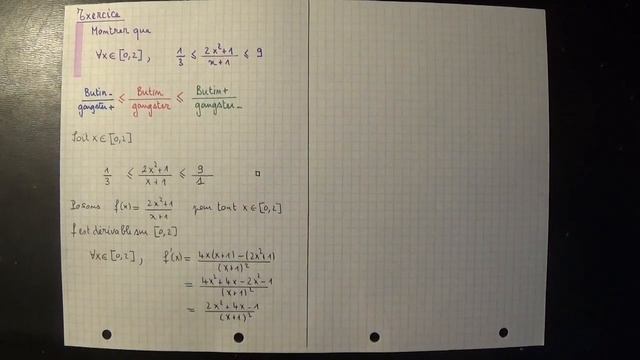 Exercice
Montrer que
∀x∈[0,2], 1/3 ≤ (2x²+1)/(x+1) ≤ 9
Butin-/gangster+ ≤ Butin/gangster ≤ Butin+/gangster-
Soit x∈[0,2]
1/3 ≤ (2x²+1)/(x+1) ≤ 9/1 □
Posons f(x)= (2x²+1)/(x+1) pour tout x∈[0,2]
f est dérivable sur [0,2]
∀x∈[0,2], f'(x) = (4x(x+1)-(2x²+1))/(x+1)²
= (4x²+4x-2x²-1)/(x+1)²
= (2x²+4x-1)/(x+1)²